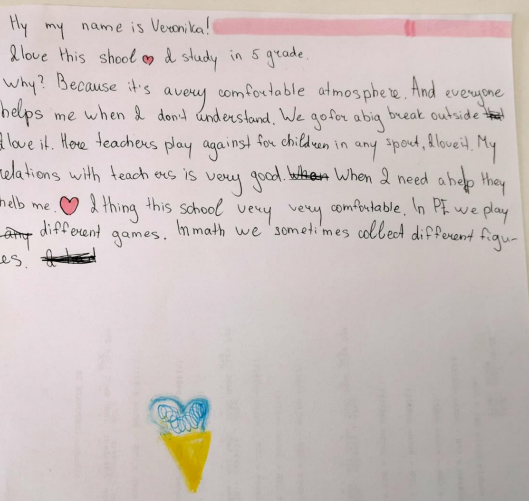 Hy my name is Veronika!
I love this shool I study in 5 grade.
Why? Because it's a very comfortable atmosphere. And everyone
helps me when I don't understand. We go for a big break outside
I love it. Here teachers play against for children in any sport, I love it. My
relations with teachers is very good. When When I need a help they
helb me. I thing this school very very comfortable. In PE we play
any different games. In math we sometimes collect different figu-
es.